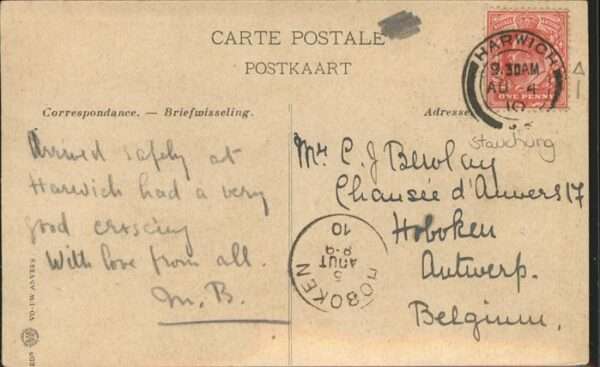 CARTE POSTALE
POSTKAART
Correspondance. — Briefwisseling.
Arrived safely at
Harwich had a very
good crossing
With love from all.
M. B.
Adresse
Mr C. J.
Chausée d'Anvers 17
Hoboken
Antwerp.
Belgium.
HARWICH
9.30AM
AU 4
10
ONE PENNY
stauchung
HOBOKEN
5
AOUT
8-9
10